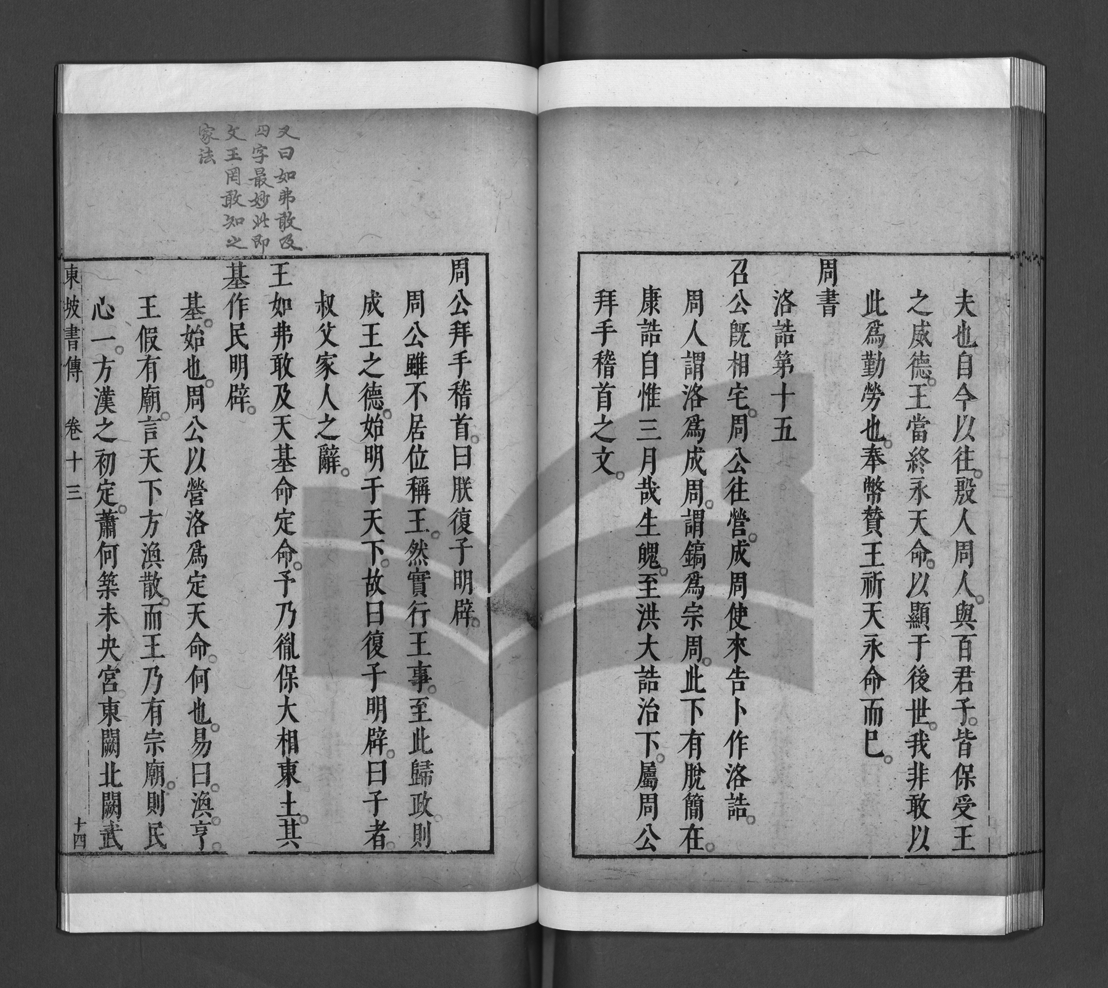 夫也自今以往。殷人周人。與百君子。皆保受王
之威德。王當終永天命。以顯于後世。我非敢以
此爲勤勞也。奉幣贊王祈天永命而已。
周書
洛誥第十五
召公旣相宅。周公往營。成周使來告卜作洛誥。
周人謂洛爲成周。謂鎬爲宗周。此下有脫簡在。
康誥自惟三月哉生魄。至洪大誥治下。屬周公
拜手稽首之文。
又曰如弗敢及
四字最妙此即
文王罔敢知之
家法
周公拜手稽首。曰朕復子明辟。
周公雖不居位稱王。然實行王事。至此歸政。則
成王之德。始明于天下。故曰復子明辟。曰子者。
叔父家人之辭。
王如弗敢及天基命定命。予乃胤保大相東土。其
基作民明辟。
基。始也。周公以營洛爲定天命。何也。易曰。渙亨。
王假有廟。言天下方渙散。而王乃有宗廟。則民
心一。方漢之初定。蕭何築未央宮。東闕北闕武
東坡書傳 卷十三 十四